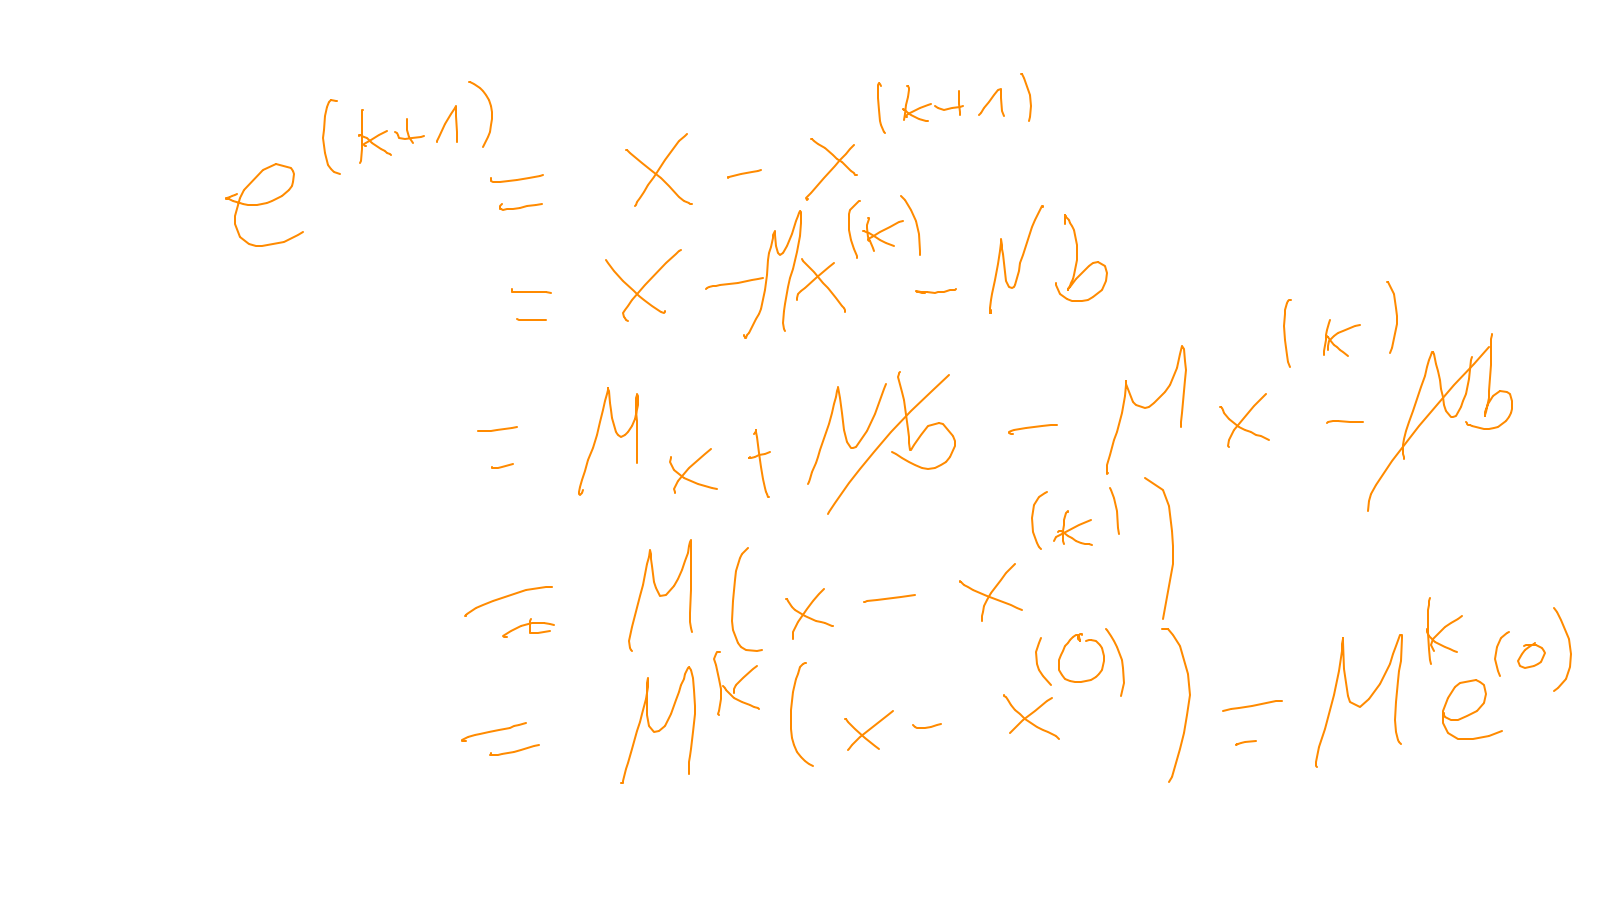 e^(k+1) = x - x^(k+1)
= x - Mx^(k) - Nb
= Mx + Nb - Mx^(k) - Nb
= M(x - x^(k))
= M^k(x - x^(0)) = M^k e^(0)